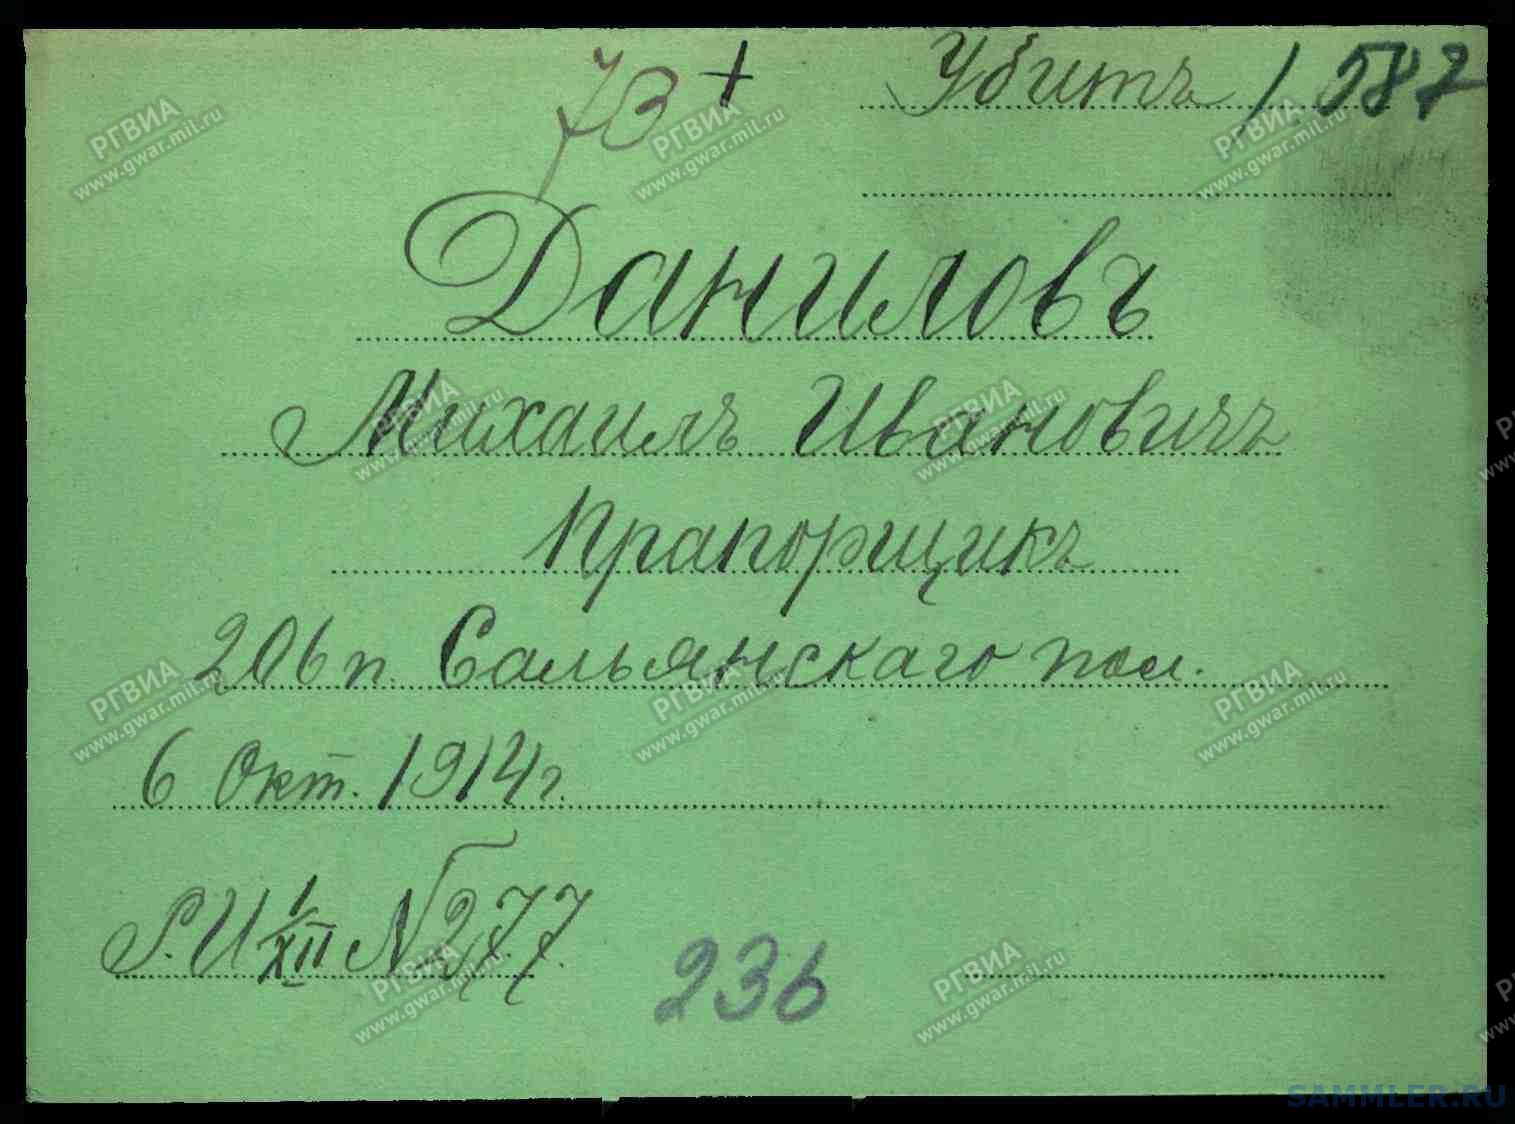 73 + Убитъ / 587
Даниловъ
Михаилъ Ивановичъ
Прапорщикъ
206 п. Сальянскаго пол.
6 Окт. 1914 г.
Р.И 1/XII № 277.
236
РГВИА
www.gwar.mil.ru
SAMMLER.RU